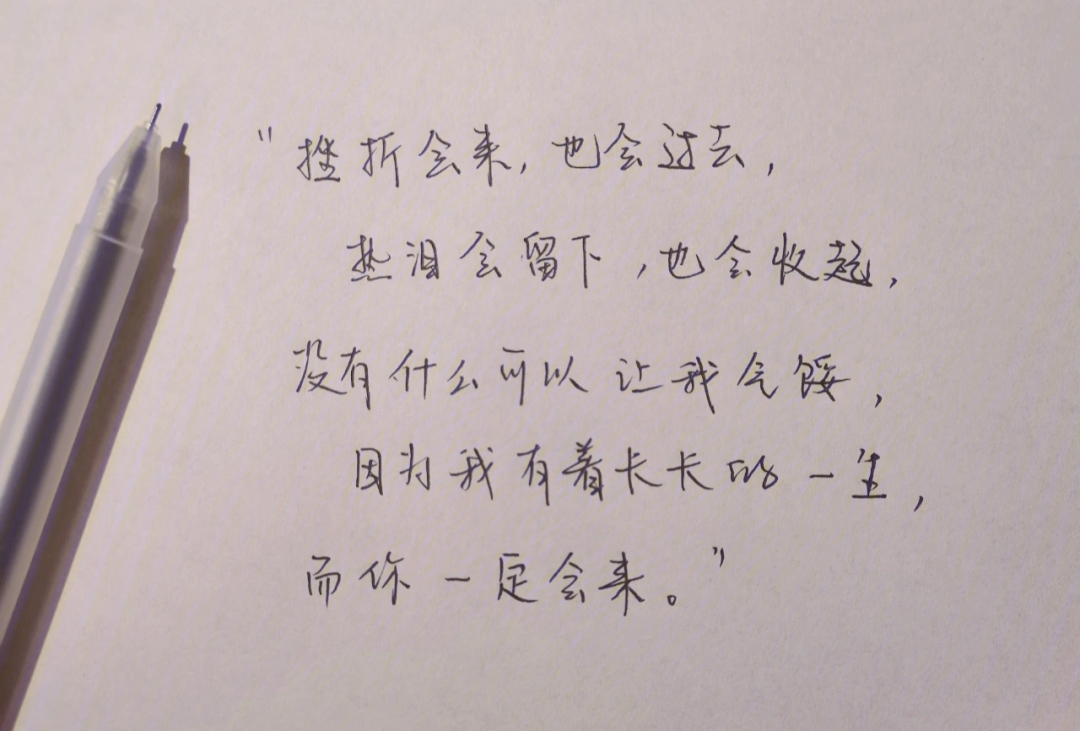 “挫折会来,也会过去,
热泪会留下,也会收起,
没有什么可以让我气馁,
因为我有着长长的一生,
而你一定会来。”